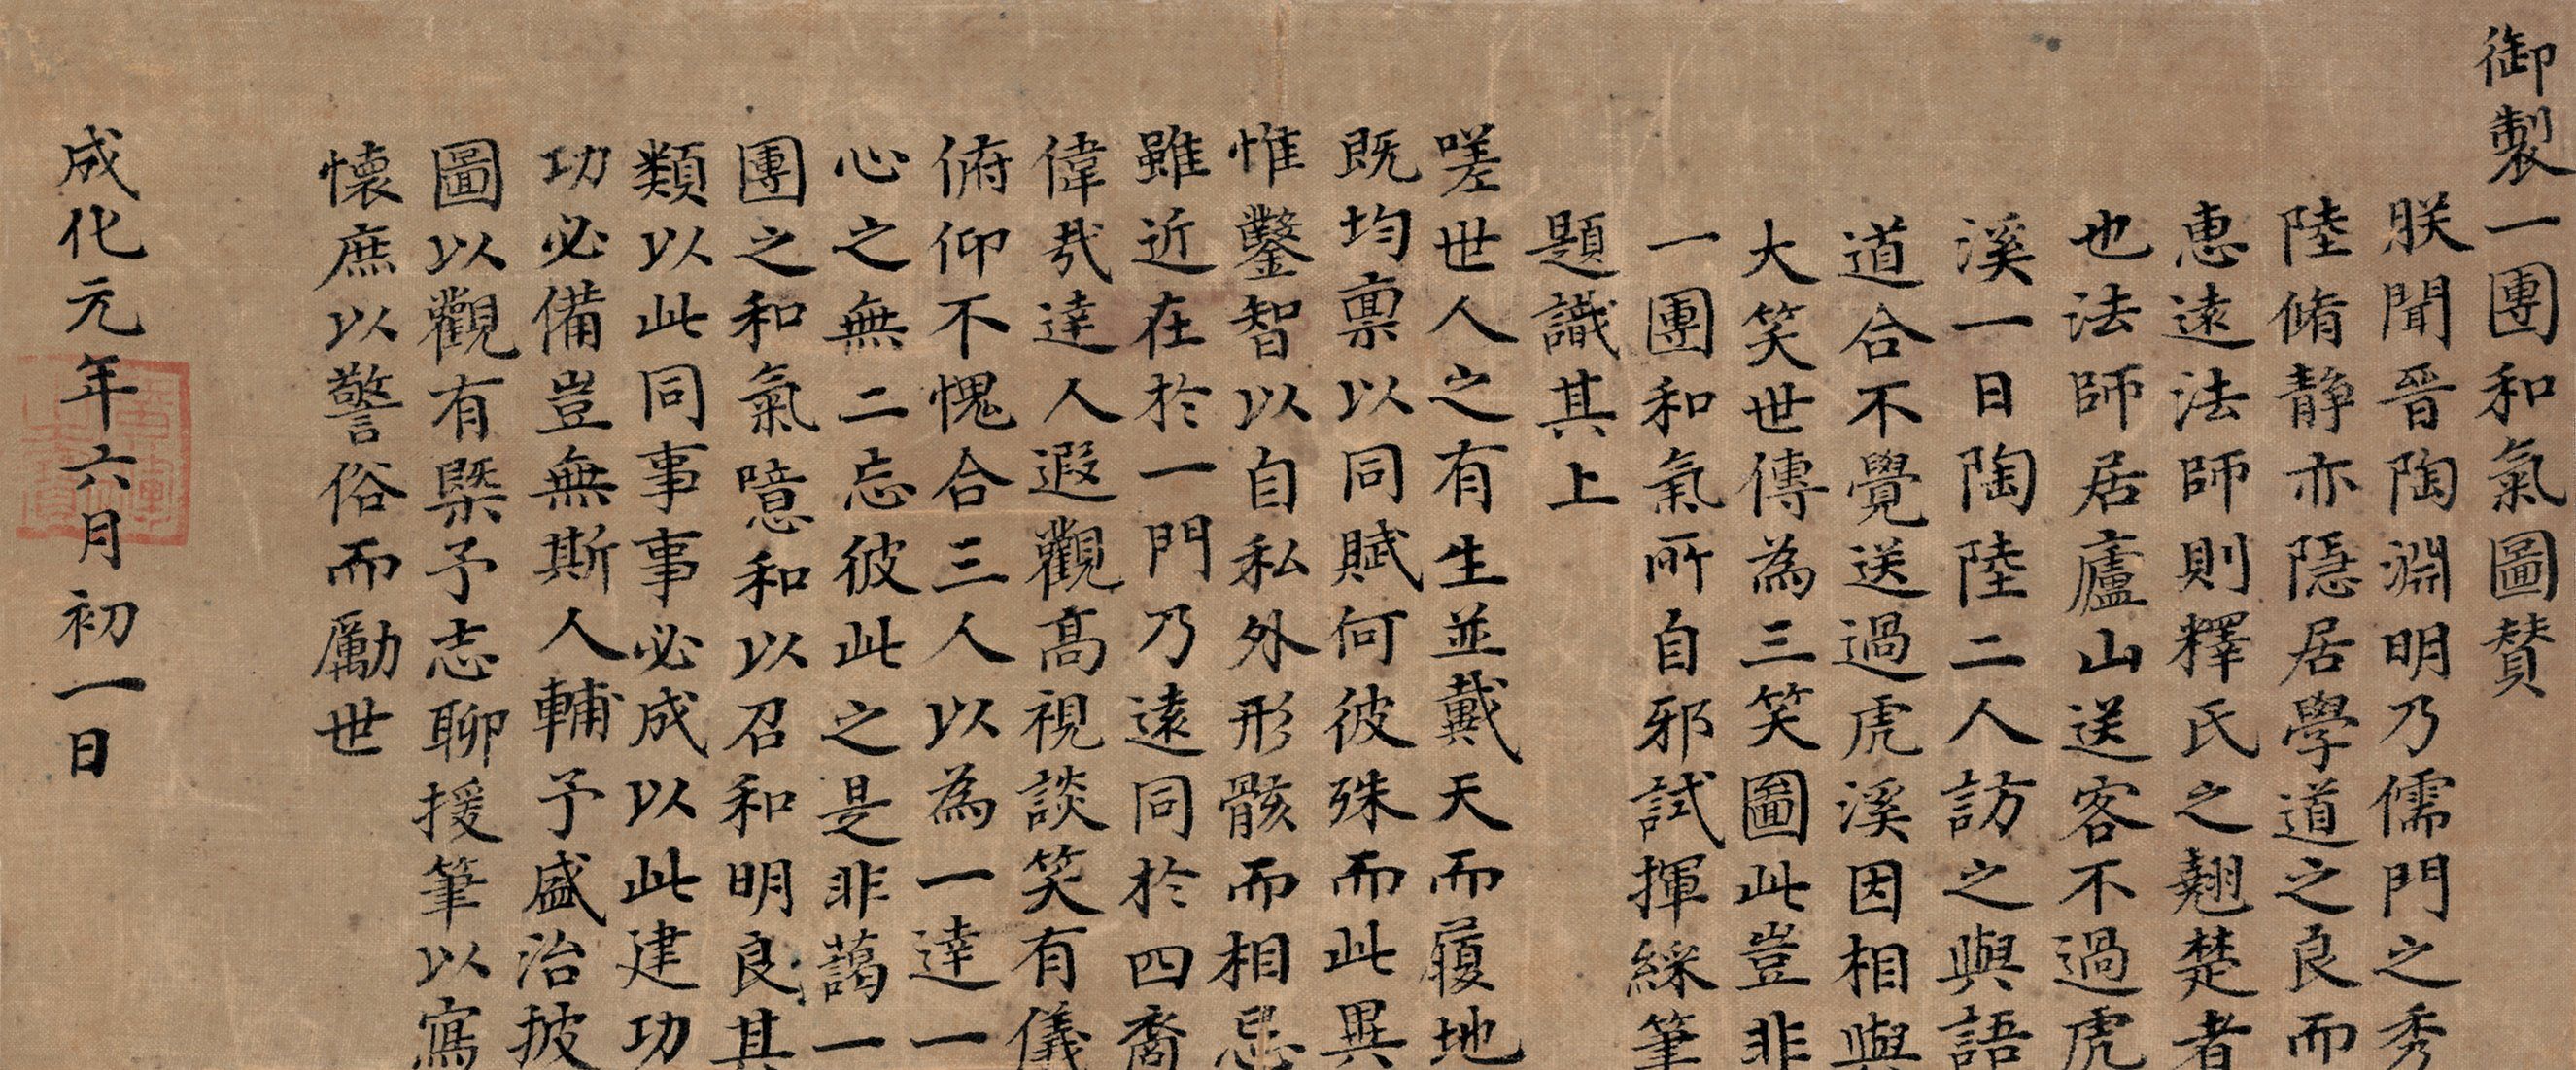 御製一團和氣圖賛
朕聞晉陶淵明乃儒門之秀
陸脩静亦隱居學道之良而
惠遠法師則釋氏之翹楚者
也法師居廬山送客不過虎
溪一日陶陸二人訪之與語
道合不覺送過虎溪因相與
大笑世傳為三笑圖此豈非
一團和氣所自邪試揮綵筆
題識其上
嗟世人之有生並戴天而履地
既均禀以同賦何彼殊而此異
惟鑿智以自私外形骸而相忌
雖近在於一門乃遠同於四裔
偉㢤達人遐觀高視談笑有儀
俯仰不愧合三人以為一達一
心之無二忘彼此之是非藹一
團之和氣噫和以召和明良其
類以此同事事必成以此建功
功必備豈無斯人輔予盛治披
圖以觀有槩予志聊援筆以寫
懷庶以警俗而勵世
成化元年六月初一日